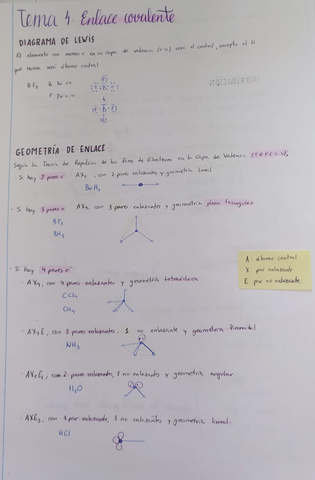 Tema 4 Enlace covalente
DIAGRAMA DE LEWIS
El elemento con menos e⁻ en su capa de valencia (c.v.) será el central, excepto el H
que nunca será átomo central
BF3 B: 3e⁻ c.v.
F: 7e⁻ c.v.
GEOMETRÍA DE ENLACE
Según la Teoría de Repulsión de los Pares de Electrones en la Capa de Valencia (TRPECV):
- Si hay 2 pares e⁻ AX2, con 2 pares enlazantes y geometría lineal
BeH2
- Si hay 3 pares e⁻ AX3, con 3 pares enlazantes y geometría plana triangular
BF3
BH3
A átomo central
X par enlazante
E par no enlazante
- Si hay 4 pares e⁻
· AX4, con 4 pares enlazantes y geometría tetraédrica
CCl4
CH4
· AX3E, con 3 pares enlazantes, 1 no enlazante y geometría Piramidal
NH3
· AX2E2, con 2 pares enlazantes, 2 no enlazantes y geometría, angular
H2O
· AXE3, con 1 par enlazante, 3 no enlazantes y geometría lineal.
HCl